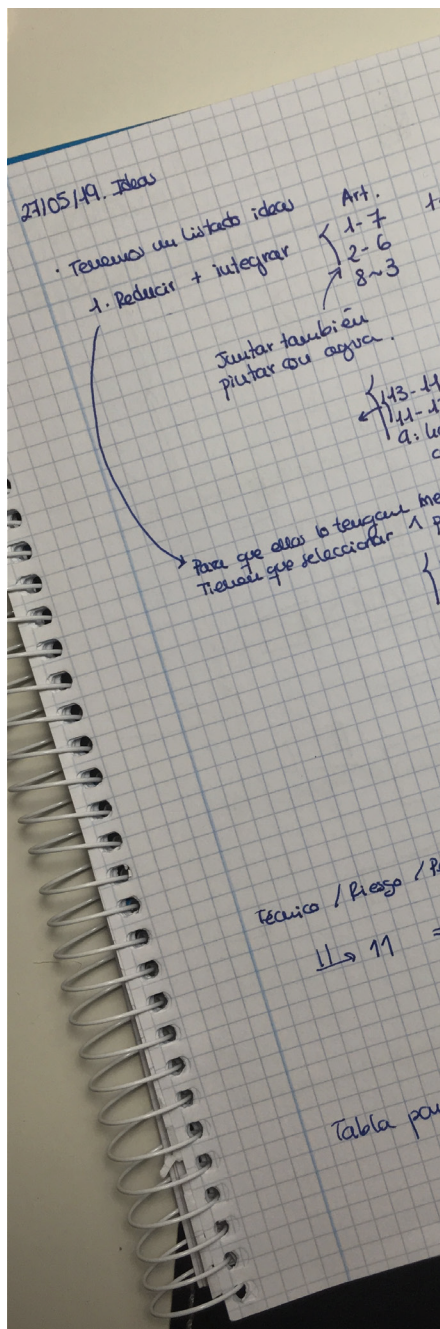 27/05/19. Ideas
· Tenemos un Listado ideas
Art.
1. Reducir + integrar
1-7
2-6
8~3
Juntar también
pintar con agua.
13-11
11-1
9:
Para que ellos lo tengan
Tienen que seleccionar 1
Técnico / Riesgo /
11
Tabla